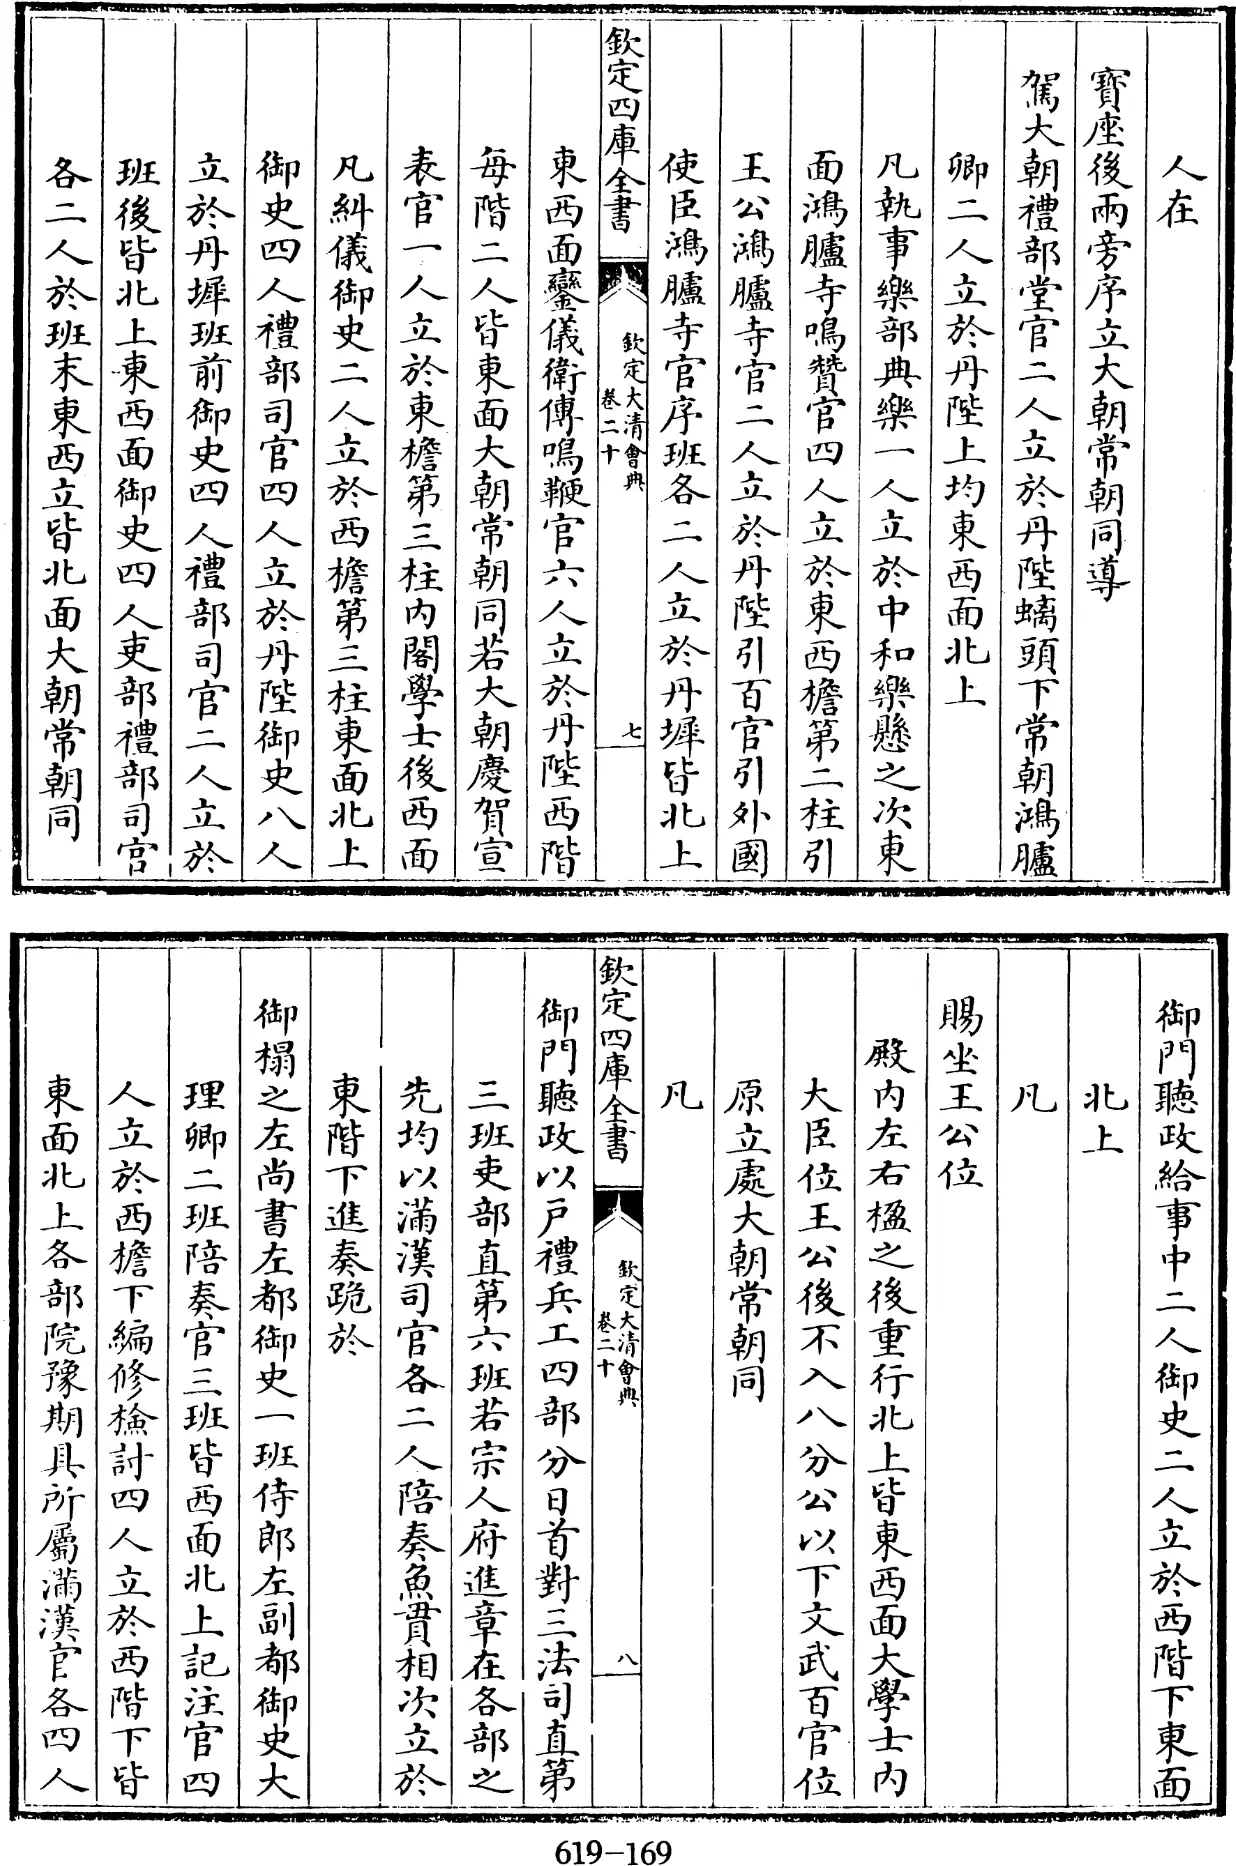 人在
寳座後兩旁序立大朝常朝同導
駕大朝禮部堂官二人立於丹陛螭頭下常朝鴻臚
卿二人立於丹陛上均東西面北上
凡執事樂部典樂一人立於中和樂懸之次東
面鴻臚寺鳴贊官四人立於東西檐第二柱引
王公鴻臚寺官二人立於丹陛引百官引外國
使臣鴻臚寺官序班各二人立於丹墀皆北上
欽定四庫全書
欽定大清會典
卷二十
七
東西面鑾儀衛傳鳴鞭官六人立於丹陛西階
每階二人皆東面大朝常朝同若大朝慶賀宣
表官一人立於東檐第三柱内閣學士後西面
凡糾儀御史二人立於西檐第三柱東面北上
御史四人禮部司官四人立於丹陛御史八人
立於丹墀班前御史四人禮部司官二人立於
班後皆北上東西面御史四人吏部禮部司官
各二人於班末東西立皆北面大朝常朝同
御門聽政給事中二人御史二人立於西階下東面
北上
凡
賜坐王公位
殿内左右楹之後重行北上皆東西面大學士内
大臣位王公後不入八分公以下文武百官位
原立處大朝常朝同
凡
欽定四庫全書
欽定大清會典
卷二十
八
御門聽政以戸禮兵工四部分日首對三法司直第
三班吏部直第六班若宗人府進章在各部之
先均以滿漢司官各二人陪奏魚貫相次立於
東階下進奏跪於
御榻之左尚書左都御史一班侍郎左副都御史大
理卿二班陪奏官三班皆西面北上記注官四
人立於西檐下編修檢討四人立於西階下皆
東面北上各部院豫期具所屬滿漢官各四人
619-169